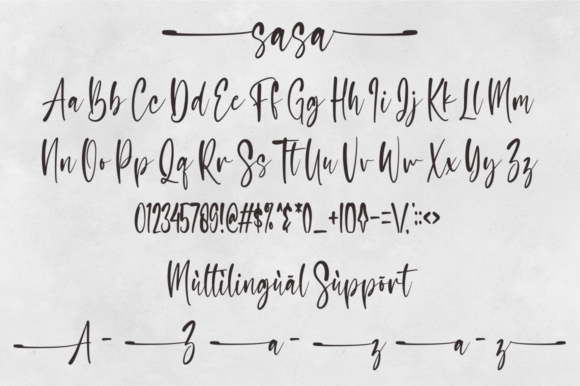 sasa
Aa Bb Cc Dd Ee Ff Gg Hh Ii Jj Kk Ll Mm
Nn Oo Pp Qq Rr Ss Tt Uu Vv Ww Xx Yy Zz
012345789!@#$%^&*()_+|{}-=\/.:;<>
Mùltīlingùāl Sùppōrt
A - Z a - z a - z